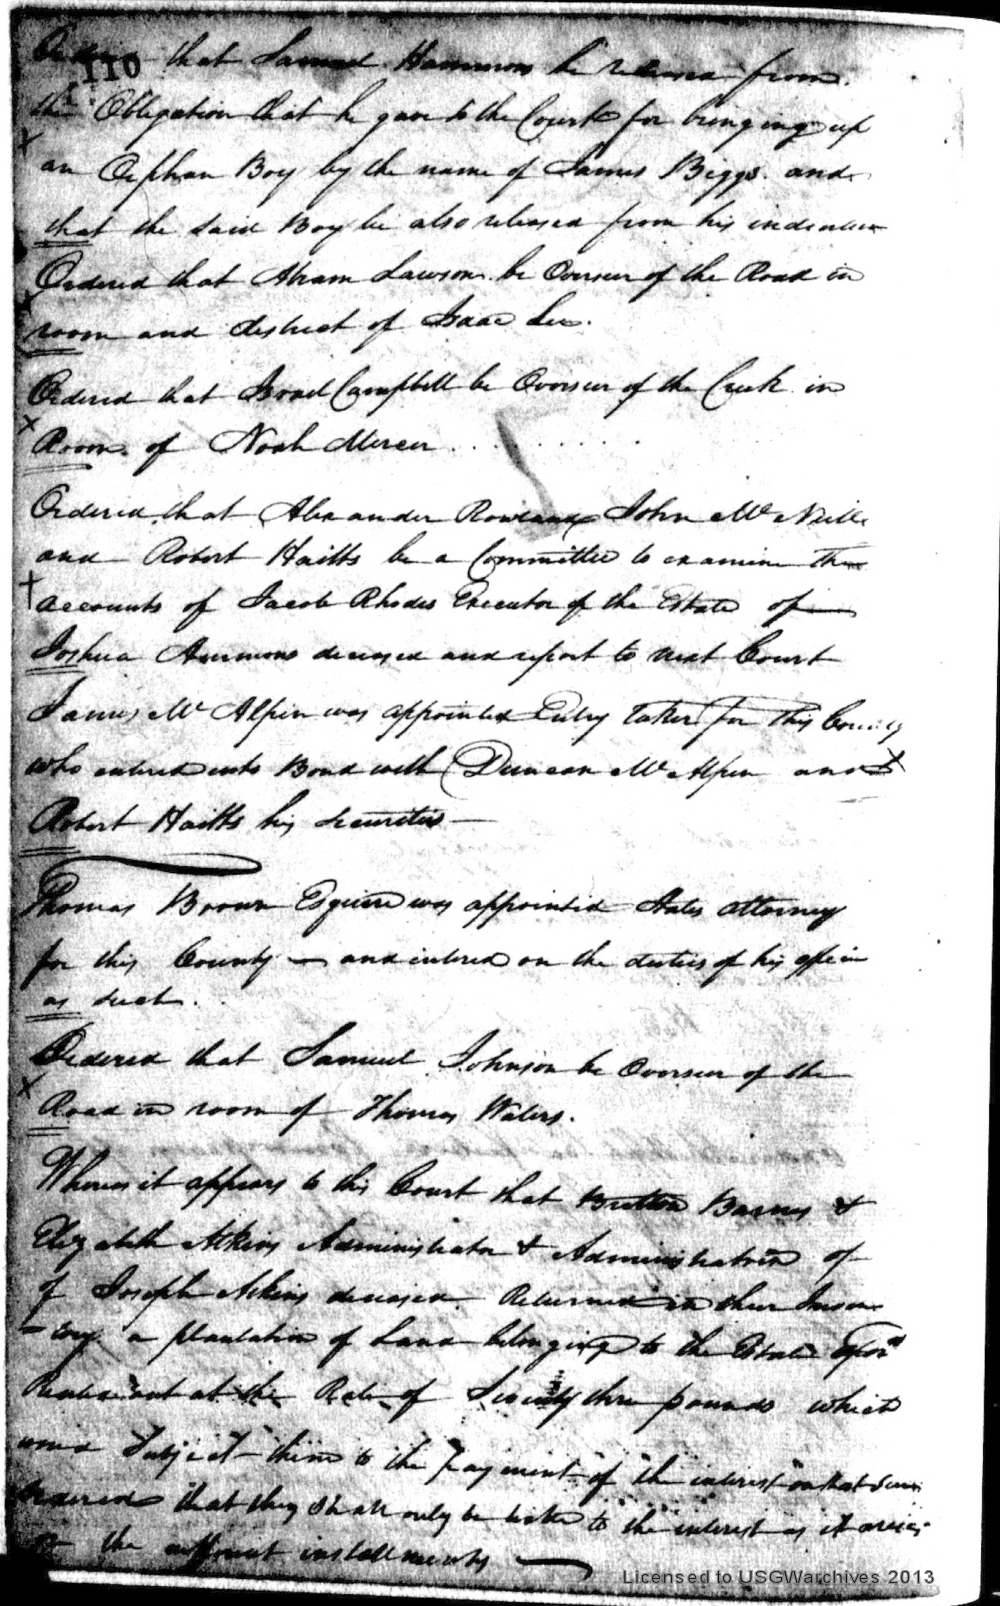 110
that Samuel Hammons be released from
the Obligation that he gave to the Court for bringing up
an Orphan Boy by the name of James Biggs and
that the said Boy be also released from his indenture
Ordered that Abram Lawson be Overseer of the Road in
room and district of Isaac Lee.
Ordered that Israel Campbell be Overseer of the Creek in
Room of Noah Mercer
Ordered that Alexander Rowland John McNeill
and Robert Haitts be a Committee to examine the
accounts of Jacob Rhodes Executor of the Estate of
Joshua Ammons deceased and report to next Court
James McAlpin was appointed Entry taker for this County
who entered into Bond with Duncan McAlpin and
Robert Haitts his securities
Thomas Brown Esquire was appointed States attorney
for this County and entered on the duties of his office
as such.
Ordered that Samuel Johnson be Overseer of the
Road in room of Thomas Waters.
Whereas it appears to this Court that Britton Barnes &
Elizabeth Atkins Administrator & Administratrix of
of Joseph Atkins deceased Returned in their Inven
-tory a plantation of Land belonging to the Estate
out at the Rate of three pounds which
Subject them to the payment of the interest on that Sum
Ordered that they shall only be liable to the interest as it arises
the installments
Licensed to USGWarchives 2013